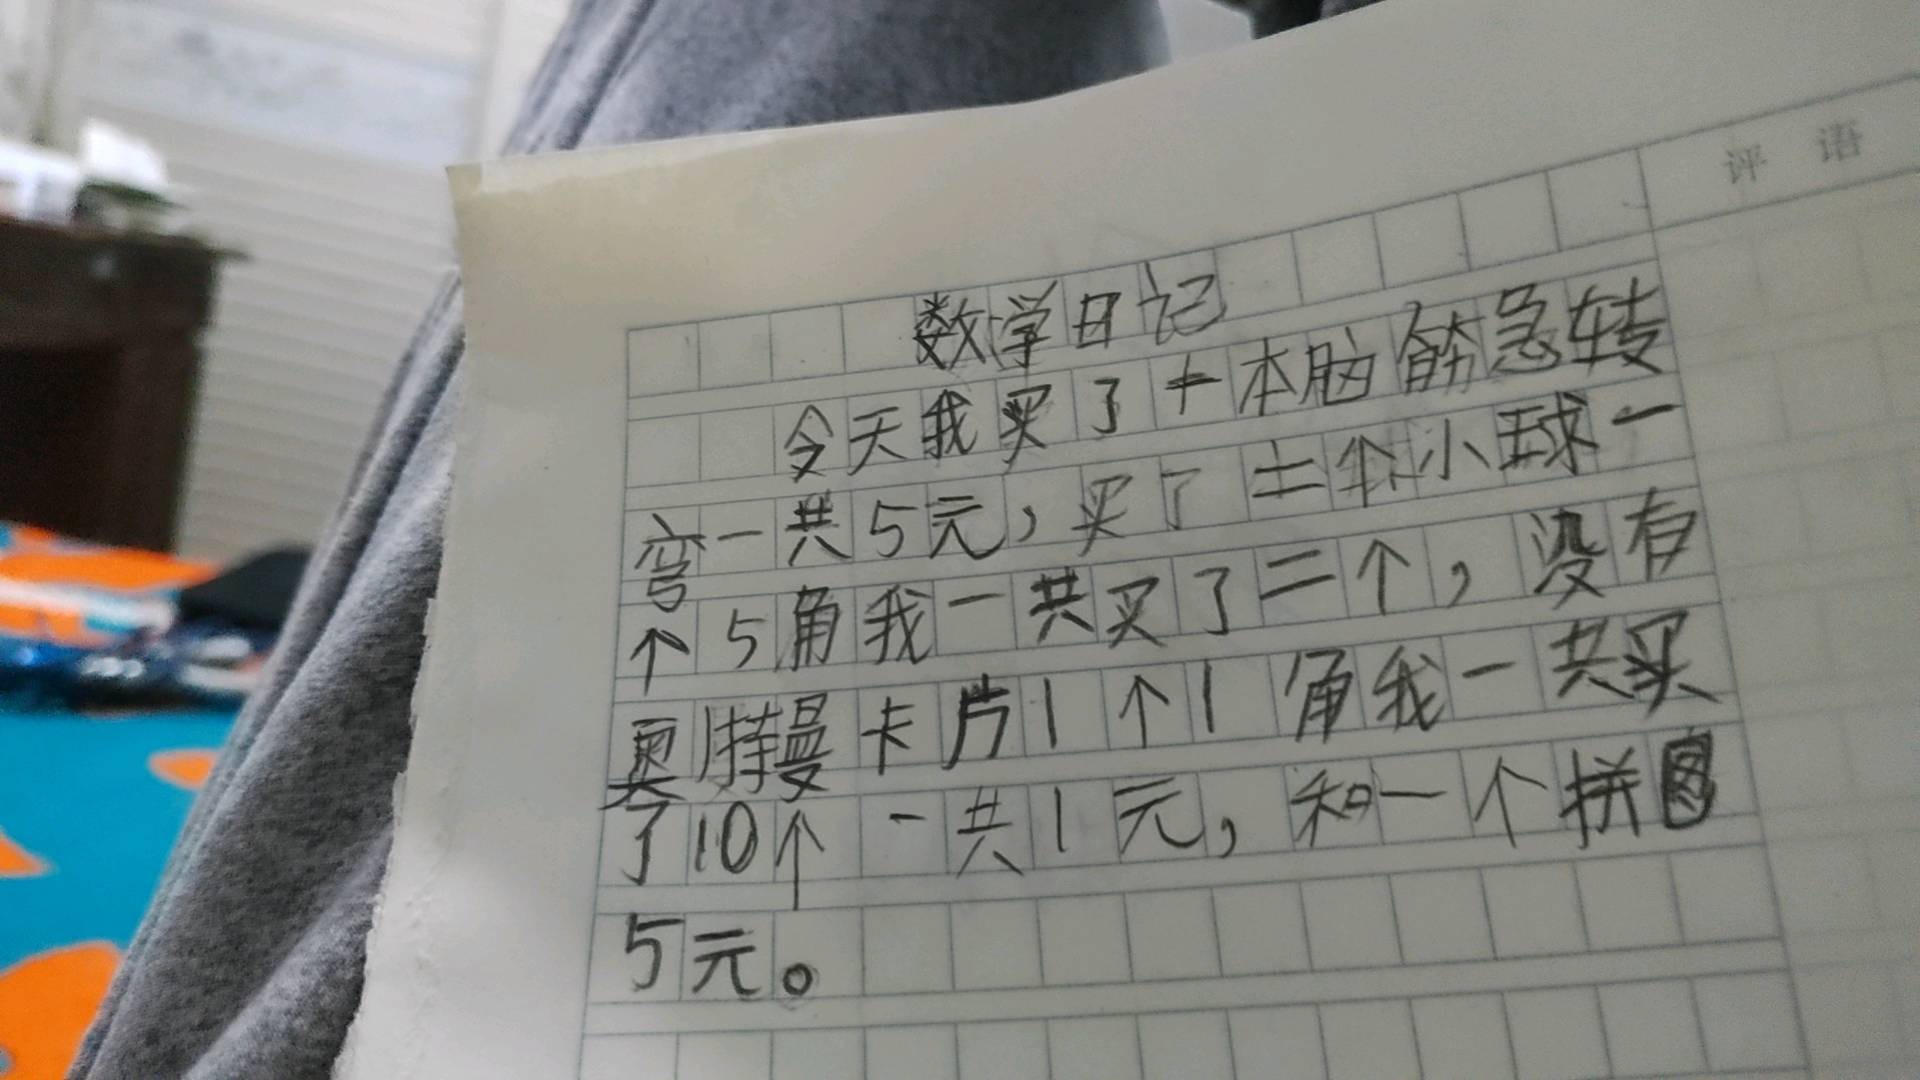 评语
数学日记
今天我买了十本脑筋急转
弯一共5元，买了二个小球一
个5角我一共买了二个，没有
奥特曼卡片1个1角我一共买
了10个一共1元，和一个拼图
5元。